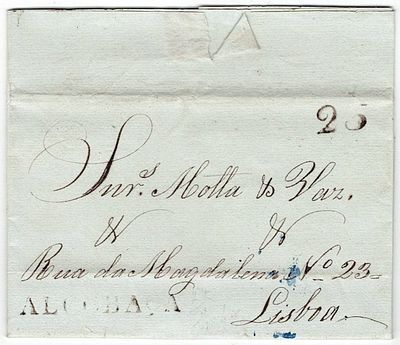 25
Snr.s Motta & Vaz.
& &
Rua da Magdalena No 23=
ALCOBAÇA
Lisboa